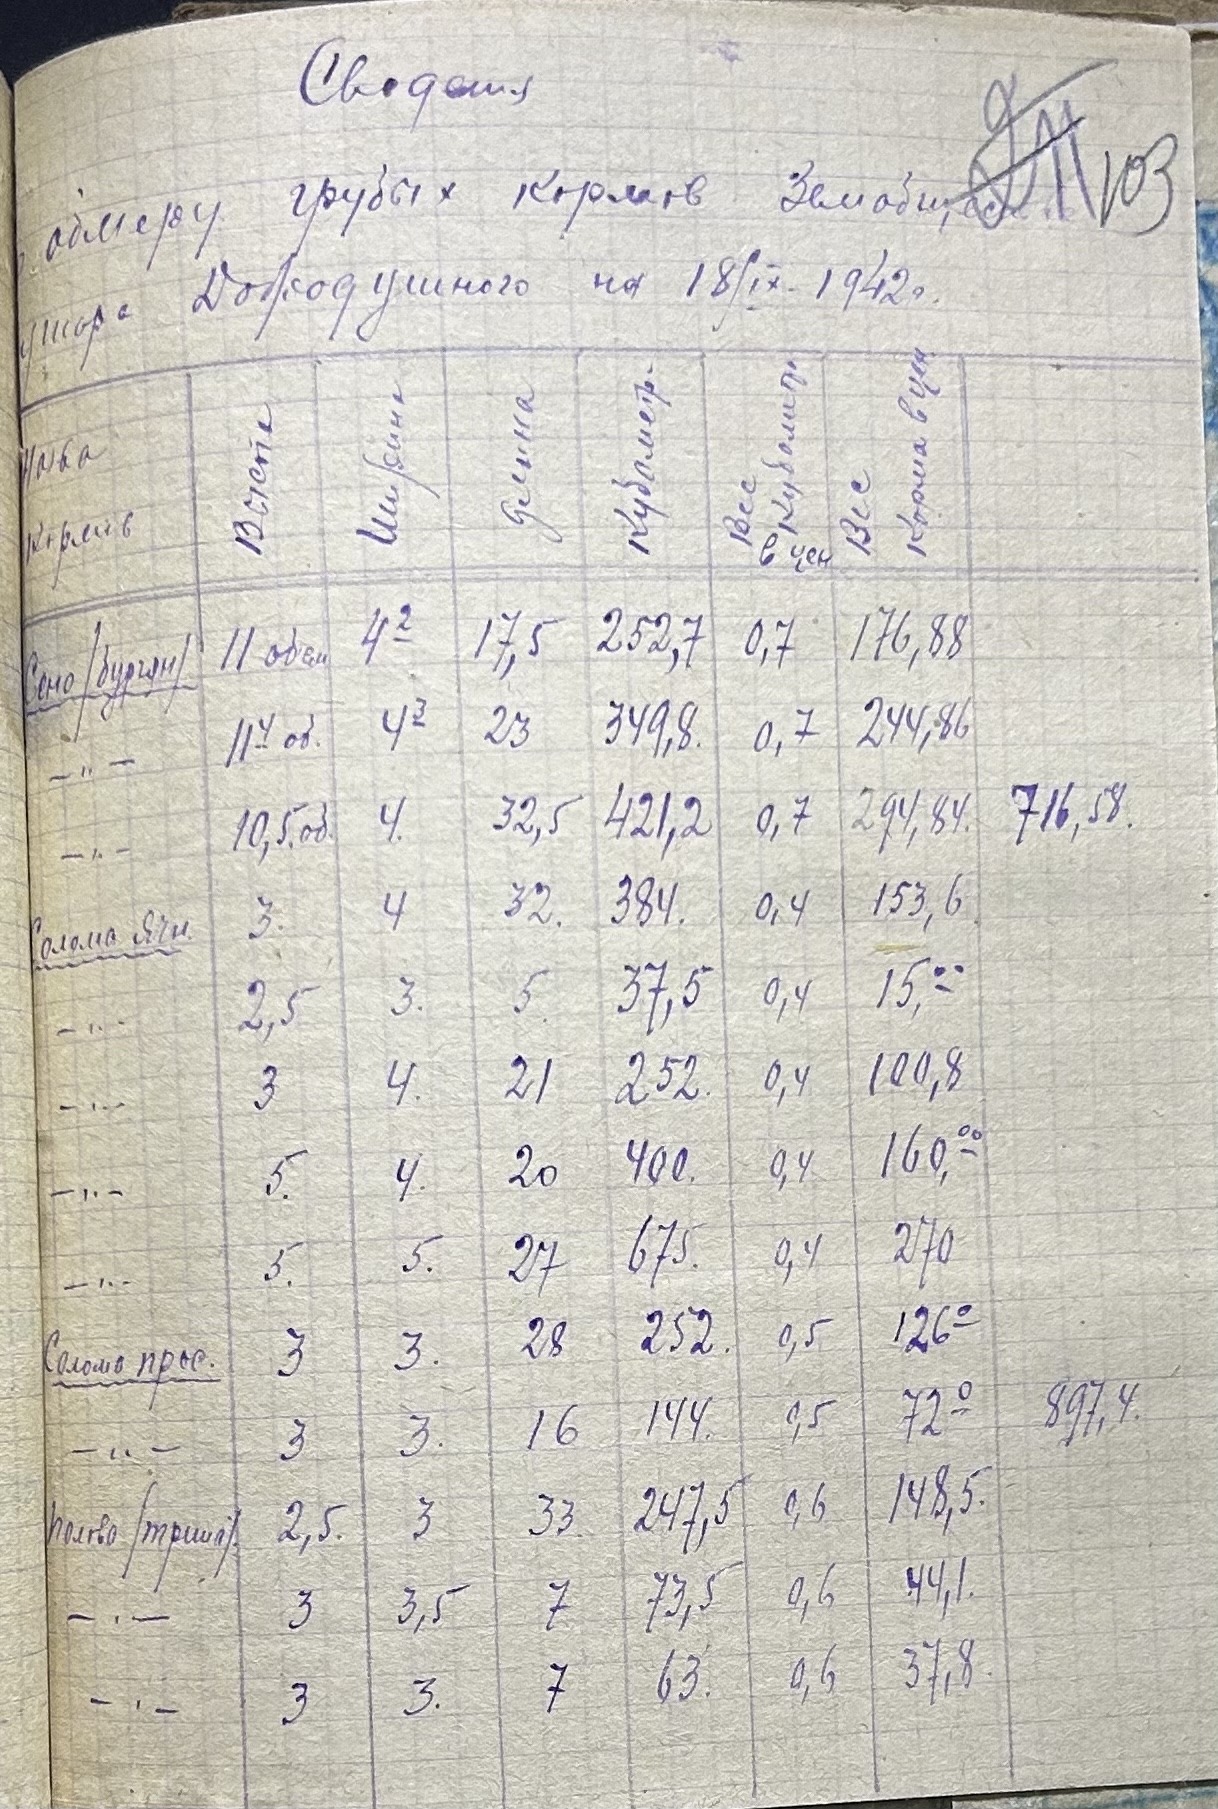 Сведения
103
обмеру грубых кормов Земобщ
утора Добродушного на 18/IX-1942г.
кормов Высота Ширина Длина Кубометр. Вес Кубометр в цен Вес Корма в цен
Сено /бурьян/ 11 обем 4² 17,5 252,7 0,7 176,88
-"- 11⁴ об. 4³ 23 349,8. 0,7 244,86
-"- 10,5.об. 4. 32,5 421,2 0,7 294,84. 716,58.
Солома Ячн. 3. 4 32. 384. 0,4 153,6
-"- 2,5 3. 5. 37,5 0,4 15,00
-"- 3 4. 21 252. 0,4 100,8
-"- 5. 4. 20 400. 0,4 160,00
-"- 5. 5. 27 675. 0,4 270
Солома прос. 3 3. 28 252. 0,5 126⁰
-"- 3 3. 16 144. 0,5 72⁰ 897,4.
Полова 2,5. 3 33 247,5 0,6 148,5.
-"- 3 3,5 7 73,5 0,6 44,1.
-"- 3 3. 7 63. 0,6 37,8.